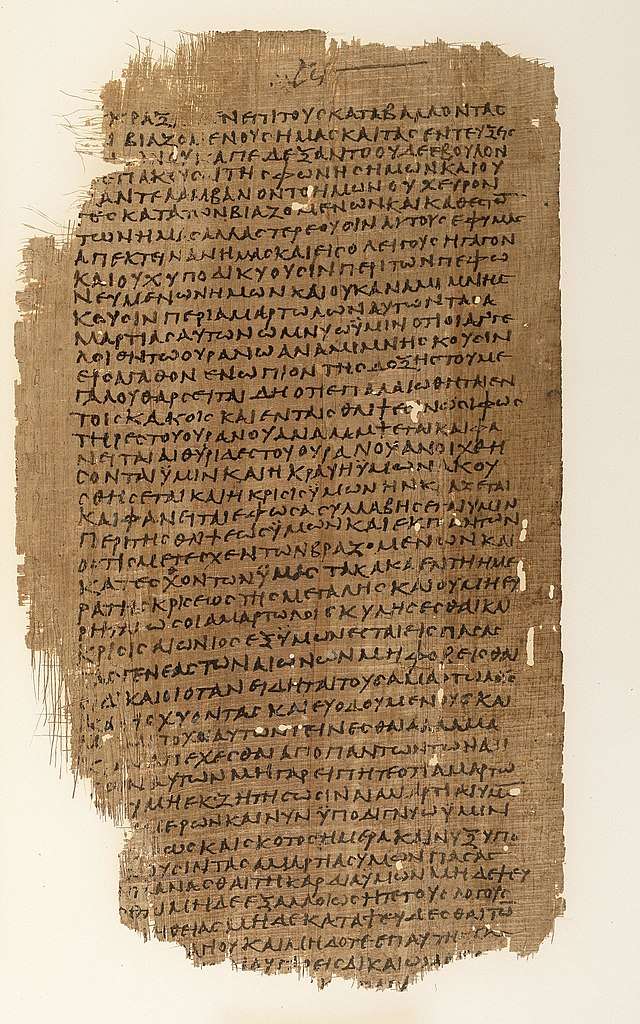 ΚΡΑΞ ΝΕΠΙΤΟΥϹΚΑΤΑΒΑΛΛΟΝΤΑϹ
ΒΙΑΖΟΜΕΝΟΥϹΗΜΑϹΚΑΙΤΑϹΕΝΤΕΥΞΕΙϹ
ΟΥΚΑΠΕΔΕΞΑΝΤΟΟΥΔΕΕΒΟΥΛΟΝ
ΕΠΑΚΟΥϹ ΙΤΗϹΦΩΝΗϹΗΜΩΝΚΑΙΟΥ
ΑΝΤΕΛΑΜΒΑΝΟΝΤΟΗΜΩΝΟΥΧΕΥΡΟΝ
ΤΕϹΚΑΤΑΤΩΝΒΙΑΖΟΜΕΝΩΝΚΑΙΚΑΤΕϹΘ
ΤΩΝΗΜΑϹΑΛΛΑϹΤΕΡΕΟΥϹΙΝΑΥΤΟΥϹΕΦΥΜΑϹ
ΑΠΕΚΤΕΙΝΑΝΗΜΑϹΚΑΙΕΙϹΟΛΕΙΓΟΥϹΗΓΑΓΟΝ
ΚΑΙΟΥΧΥΠΟΔΙΚΥΟΥϹΙΝΠΕΡΙΤΩΝΠΕΦΩ
ΝΕΥΜΕΝΩΝΗΜΩΝΚΑΙΟΥΚΑΝΑΜΙΜΝΗϹ
ΚΟΥϹΙΝΠΕΡΙΑΜΑΡΤΩΛΩΝΑΥΤΩΝΤΑϹΑ
ΜΑΡΤΙΑϹΑΥΤΩΝΟΜΝΥΩΫΜΙΝΟΤΙΟΙΑΓΓΕ
ΛΟΙΕΝΤΩΟΥΡΑΝΩΑΝΑΜΙΜΝΗϹΚΟΥϹΙΝ
ΕΙϹΑΓΑΘΟΝΕΝΩΠΙΟΝΤΗϹΔΟΞΗϹΤΟΥΜΕ
ΓΑΛΟΥΘΑΡϹΕΙΤΑΙΔΗΟΤΙΕΠΑΛΑΙΩΘΗΤΑΙΕΝ
ΤΟΙϹΚΑΚΟΙϹΚΑΙΕΝΤΑΙϹΘΛΙΨΕϹΙΝΩϹΙΦΩϹ
ΤΗΡΕϹΤΟΥΟΥΡΑΝΟΥΑΝΑΛΑΜΨΕΤΑΙΚΑΙΦΑ
ΝΕΙΤΑΙΑΙΘΥΡΙΔΕϹΤΟΥΟΥΡΑΝΟΥΑΝΟΙΧΘΗ
ϹΟΝΤΑΙΫΜΙΝΚΑΙΗΚΡΑΥΓΗΫΜΩΝΑΚΟΥ
ϹΘΗϹΕΤΑΙΚΑΙΗΚΡΙϹΙϹΫΜΩΝΗΝΚΡΑΖΕΤΑΙ
ΚΑΙΦΑΝΕΙΤΑΙΕΦΩϹΑϹΥΛΛΑΒΗϹΕΤΑΙΥΜΙΝ
ΠΕΡΙΤΗϹΘΛΙΨΕΩϹΫΜΩΝΚΑΙΕΚΠΑΝΤΩΝ
ΟϹΤΙϹΜΕΤΕϹΧΕΝΤΩΝΒΙΑΖΟΜΕΝΩΝΚΑΙ
ΚΑΤΕϹΘΟΝΤΩΝΫΜΑϹΤΑΚΑΚΑΕΝΤΗΗΜΕ
ΡΑΤΗϹΚΡΙϹΕΩϹΤΗϹΜΕΓΑΛΗϹΚΑΙΟΥΜΗΕΥ
ΡΗΤΑΙΩϹΟΙΑΜΑΡΤΩΛΟΙϹΚΥΛΗϹΕϹΘΑΙΚΑΙ
ΚΡΙϹΙϹΑΙΩΝΙΟϹΕΞΥΜΩΝΕϹΤΑΙΕΙϹΠΑϹΑϹ
ΤΑϹΓΕΝΕΑϹΤΩΝΑΙΩΝΩΝΜΗΦΟΒΕΙϹΘΑΙ
ΟΙΔΙΚΑΙΟΙΟΤΑΝΕΙΔΗΤΑΙΤΟΥϹΑΜΑΡΤΩΛΟΥϹ
ΚΑΤΙϹΧΥΟΝΤΑϹΚΑΙΕΥΟΔΟΥΜΕΝΟΥϹΚΑΙ
ΤΟΧΟΙΑΥΤΩΝΓΕΙΝΕϹΘΑΙΑΛΛΑΜΑ
ΑΠΕΧΕϹΘΑΙΑΠΟΠΑΝΤΩΝΤΩΝΑΔΙ
ΑΥΤΩΝΜΗΓΑΡΕΙΠΗΤΕΟΤΙΑΜΑΡΤΩ
ΜΗΕΚΖΗΤΗϹΩϹΙΝΑΙΑΜΑΡΤΙΑΙΥΜΩ
ΜΕΡΩΝΚΑΙΝΥΝΫΠΟΔΙΓΝΥΩΫΜΙΝ
ΦΩϹΚΑΙϹΚΟΤΟϹΗΜΕΡΑΚΑΙΝΥΞΥΠΟ
ΟΥϹΙΝΤΑϹΑΜΑΡΤΙΑϹΥΜΩΝΠΑϹΑϹ
ΠΛΑΝΑϹΘΑΙΤΗΚΑΡΔΙΑΥΜΩΝΜΗΔΕΨΕΥ
ΜΗΔΕΕΞΑΛΛΟΙΩϹΗΤΕΤΟΥϹΛΟΓΟΥϹ
ΘΕΙΑϹΜΗΔΕΚΑΤΑΨΕΥΔΕϹΘΑΙΤΩ
ΟΥΚΑΙΜΗΔΟΤΕΕΠΑΥΤΗ
ΔΙΚΑΙΩ